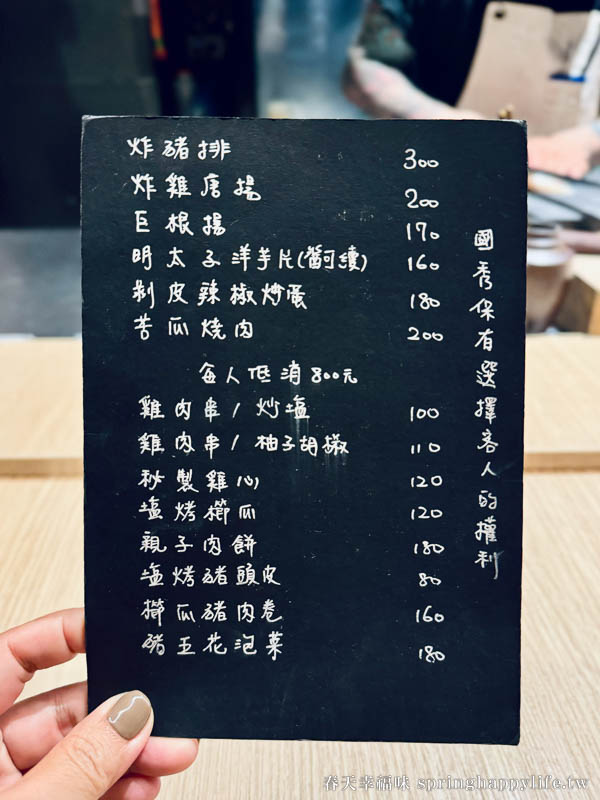 炸豬排 300
炸雞唐揚 200
巨根揚 170
明太子洋芋片(醬可續) 160
剝皮辣椒炒蛋 180
苦瓜燒肉 200
每人低消800元
雞肉串/炒塩 100
雞肉串/柚子胡椒 110
秘製雞心 120
塩烤櫛瓜 120
親子肉餅 180
塩烤豬頭皮 80
櫛瓜豬肉卷 160
豬五花泡菜 180
國秀保有選擇客人的權利
春天幸福味 springhappylife.tw